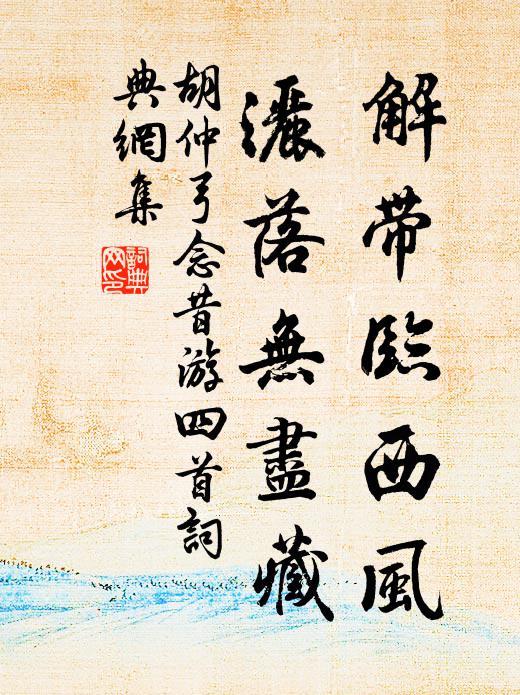 解帶臨西風
灑落無盡藏
胡仲弓念昔游四首詞
典網集
詞典
网印